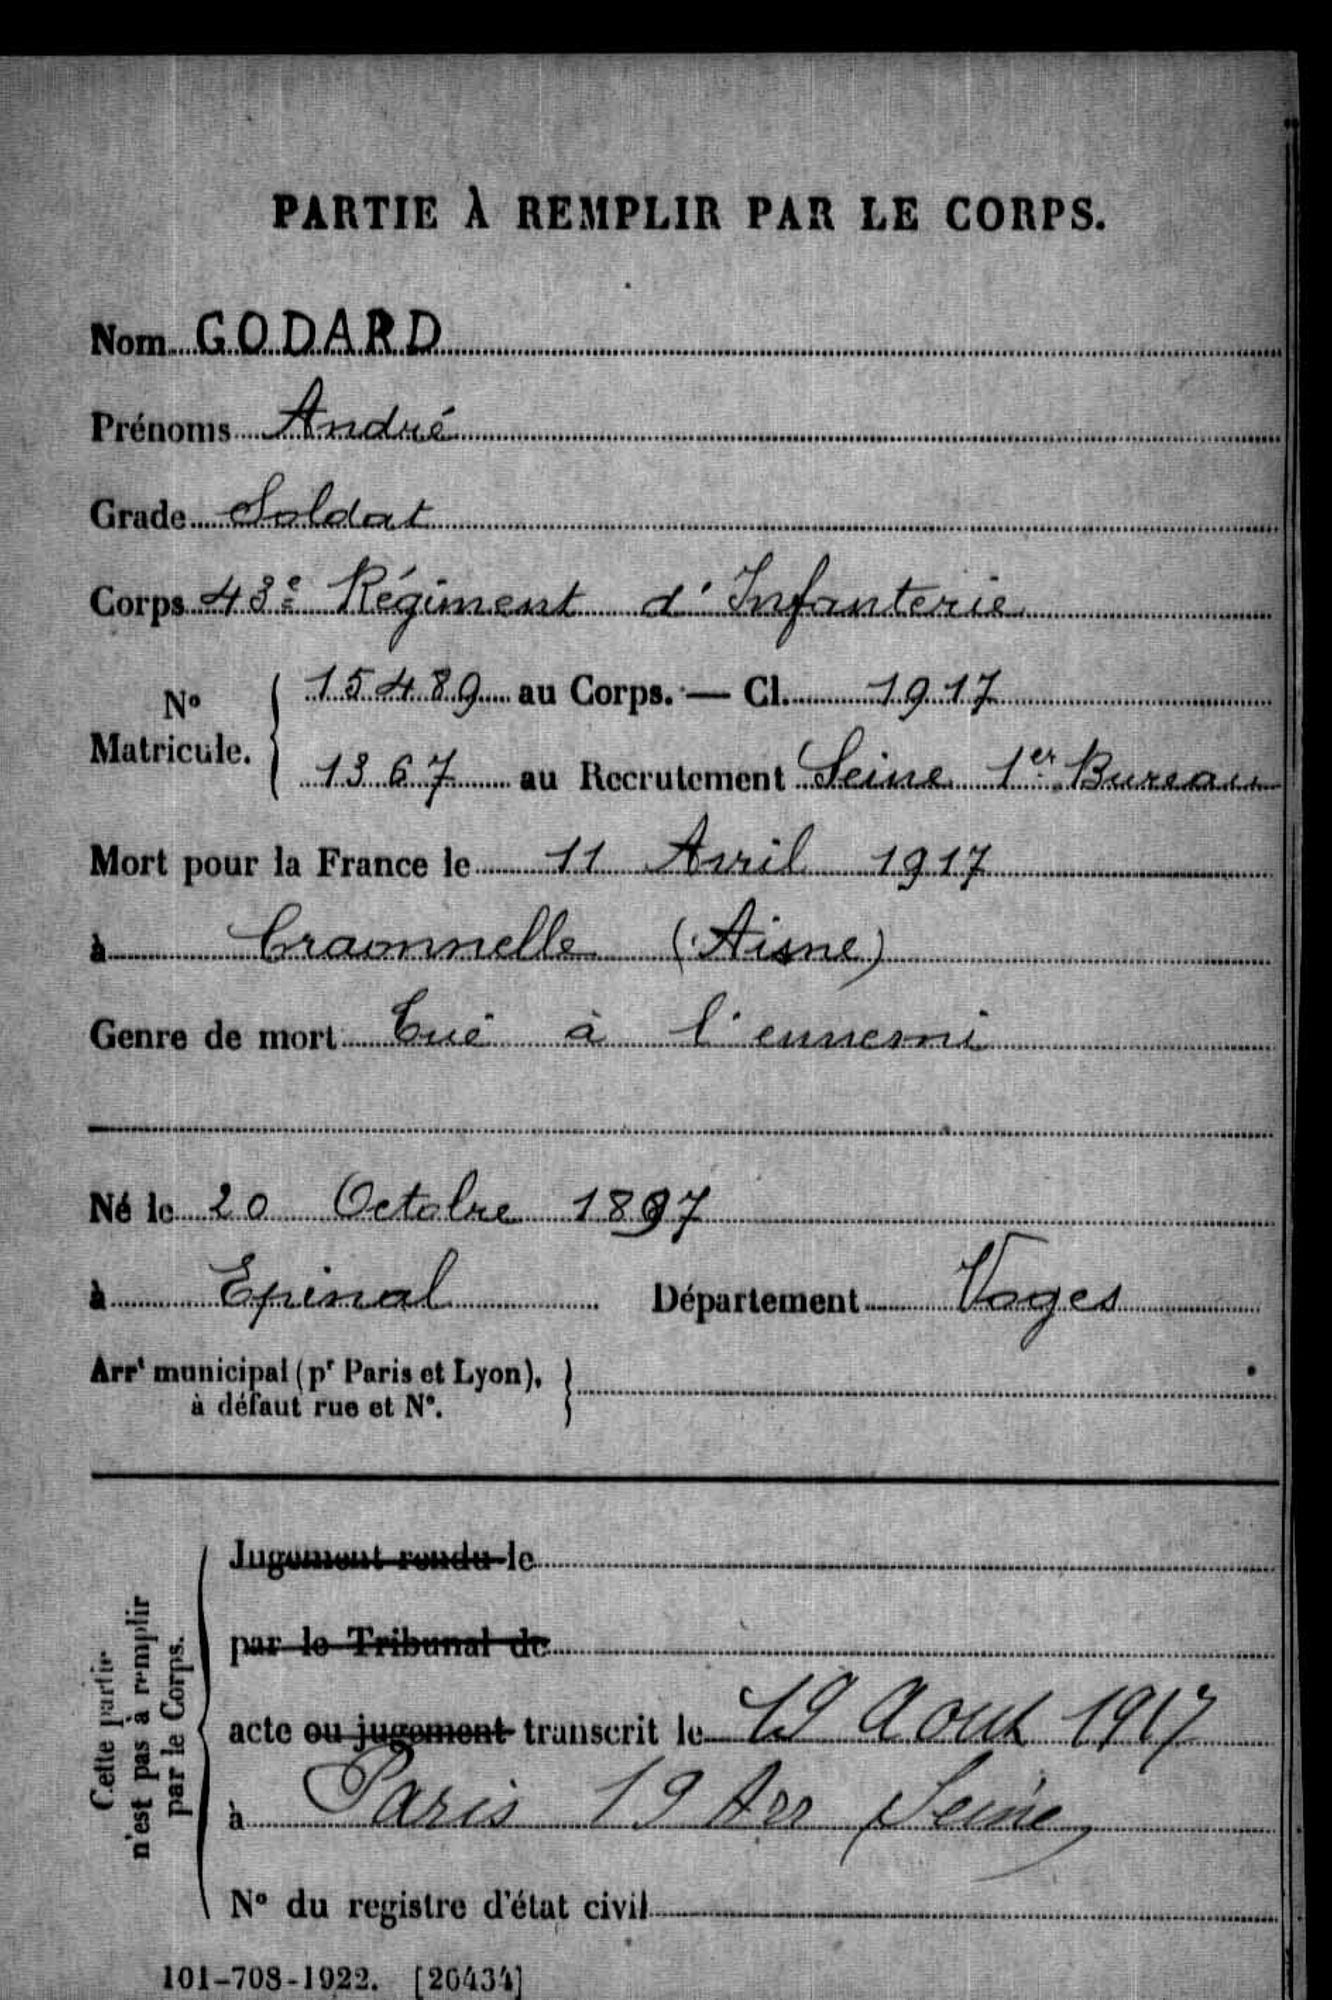 PARTIE À REMPLIR PAR LE CORPS.
Nom GODARD
Prénoms André
Grade Soldat
Corps 43e Régiment d'Infanterie
No Matricule. { 15489 au Corps. — Cl. 1917
1367 au Recrutement Seine 1er Bureau
Mort pour la France le 11 Avril 1917
à Craonnelle (Aisne)
Genre de mort Tué à l'ennemi
Né le 20 Octobre 1897
à Epinal Département Vosges
Arrt municipal (pr Paris et Lyon), }
à défaut rue et No.
Cette partie
n'est pas à remplir
par le Corps.
Jugement rendu le
par le Tribunal de
acte ou jugement transcrit le 19 Aout 1917
à Paris 19 Arr Seine
No du registre d'état civil
101-708-1922. [26434]